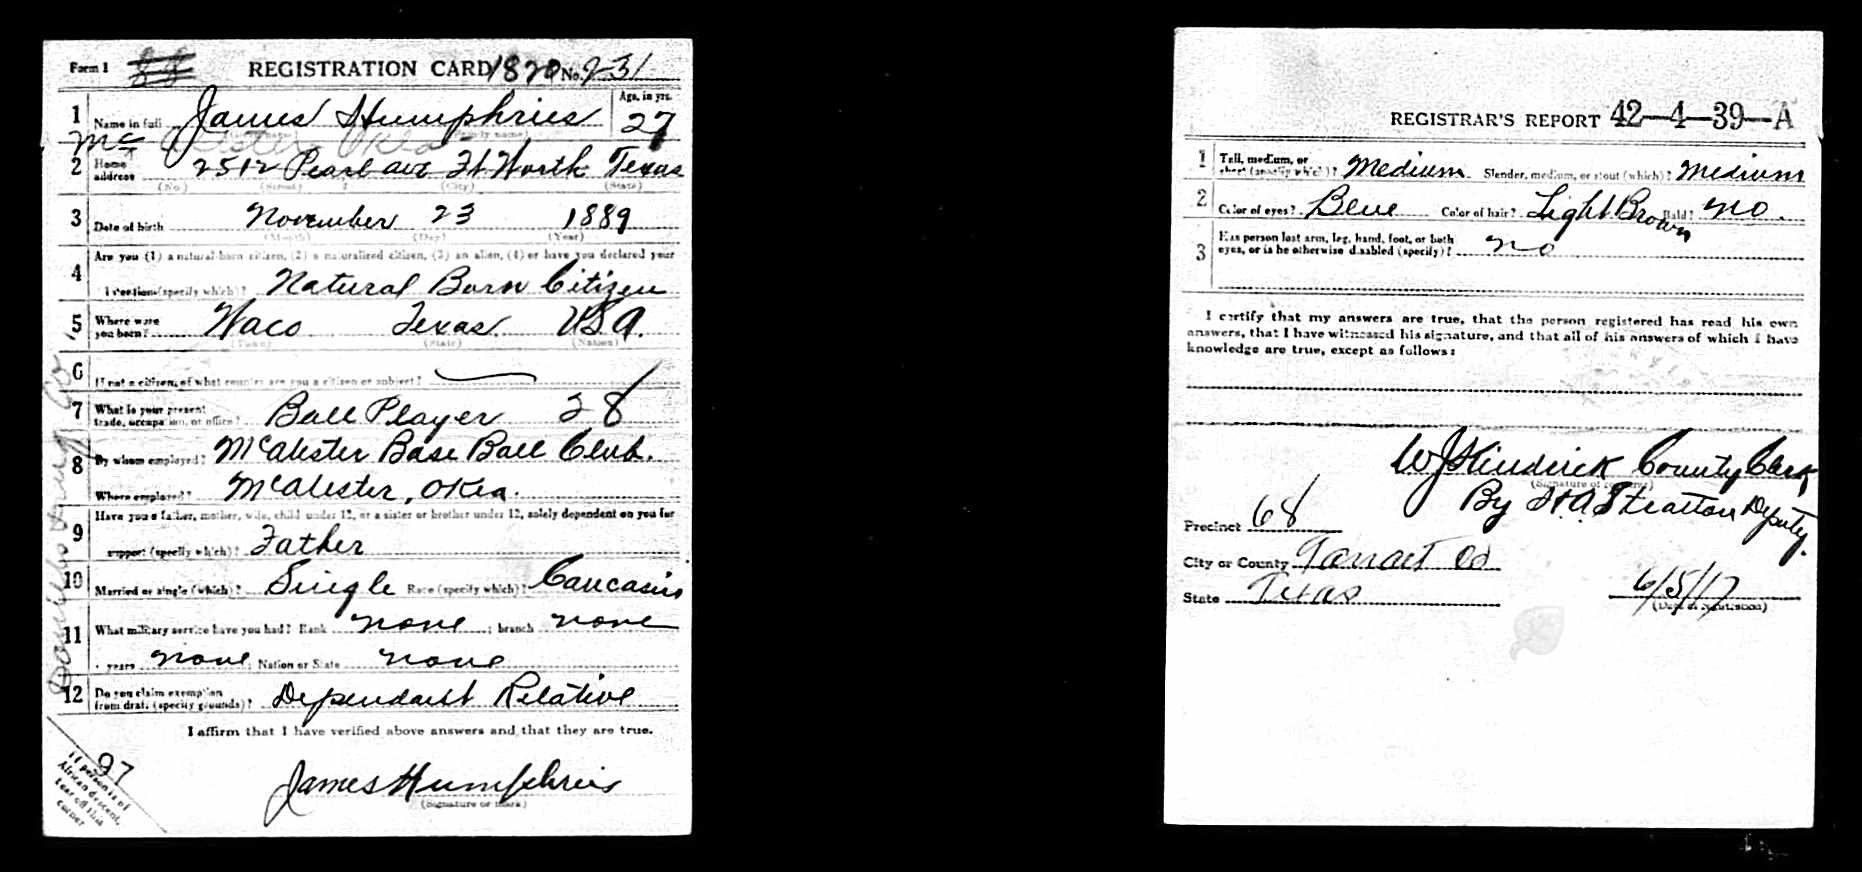 Form 1 REGISTRATION CARD 1820 No. 231
1 Name in full James Humphries Age, in yrs. 27
(Given name) (Family name)
McAlester Okla
2 Home address 2512 Pearl ave Ft Worth Texas
(No.) (Street) (City) (State)
3 Date of birth November 23 1889
(Month) (Day) (Year)
4 Are you (1) a natural-born citizen, (2) a naturalized citizen, (3) an alien, (4) or have you declared your
intention (specify which)? Natural Born Citizen
5 Where were you born? Waco Texas USA.
(Town) (State) (Nation)
6 If not a citizen, of what country are you a citizen or subject?
7 What is your present trade, occupation, or office? Ball Player 28
8 By whom employed? McAlester Base Ball Club.
Where employed? McAlester, Okla.
9 Have you a father, mother, wife, child under 12, or a sister or brother under 12, solely dependent on you for
support (specify which)? Father
10 Married or single (which)? Single Race (specify which)? Caucasin
11 What military service have you had? Rank none ; branch none
years none ; Nation or State none
12 Do you claim exemption from draft (specify grounds)? Dependant Relative
I affirm that I have verified above answers and that they are true.
James Humphries
(Signature or mark)
97
If person is of African descent, tear off this corner
REGISTRAR'S REPORT 42-4-39-A
1 Tall, medium, or short (specify which)? Medium Slender, medium, or stout (which)? Medium
2 Color of eyes? Blue Color of hair? Light Brown Bald? no.
3 Has person lost arm, leg, hand, foot, or both
eyes, or is he otherwise disabled (specify)? no
I certify that my answers are true, that the person registered has read his own
answers, that I have witnessed his signature, and that all of his answers of which I have
knowledge are true, except as follows:
County Clerk
(Signature of registrar)
By Deputy.
Precinct 68
City or County Tarrant Co
State Texas 6/5/17
(Date of registration)